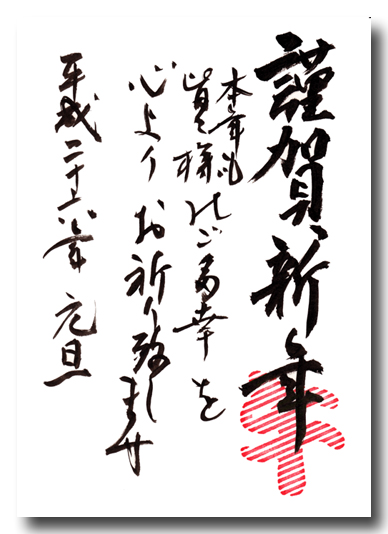 謹賀新年
午
本年も
皆々様のご多幸を
心よりお祈り致します
平成二十六年 元旦